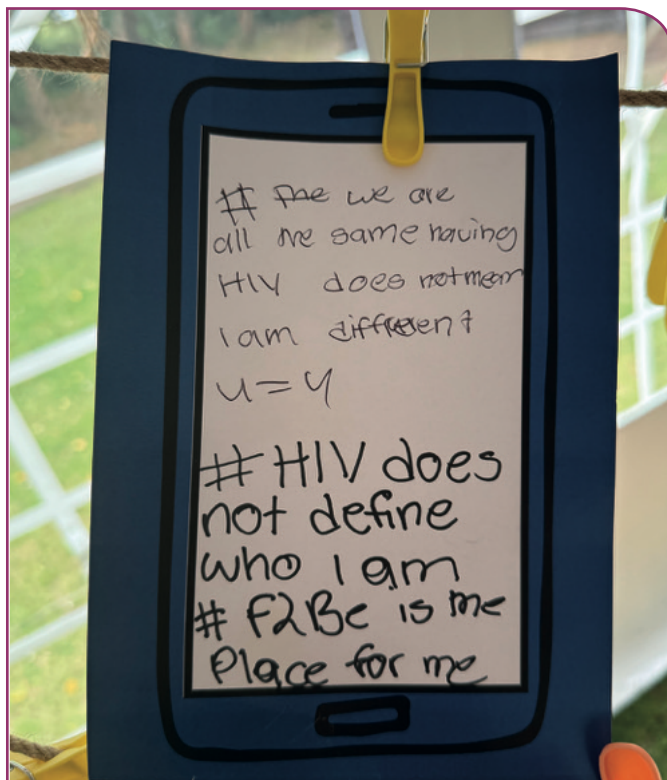 # the we are
all the same having
HIV does not mean
I am different
U=U
# HIV does
not define
who I am
# F2Be is the
Place for me